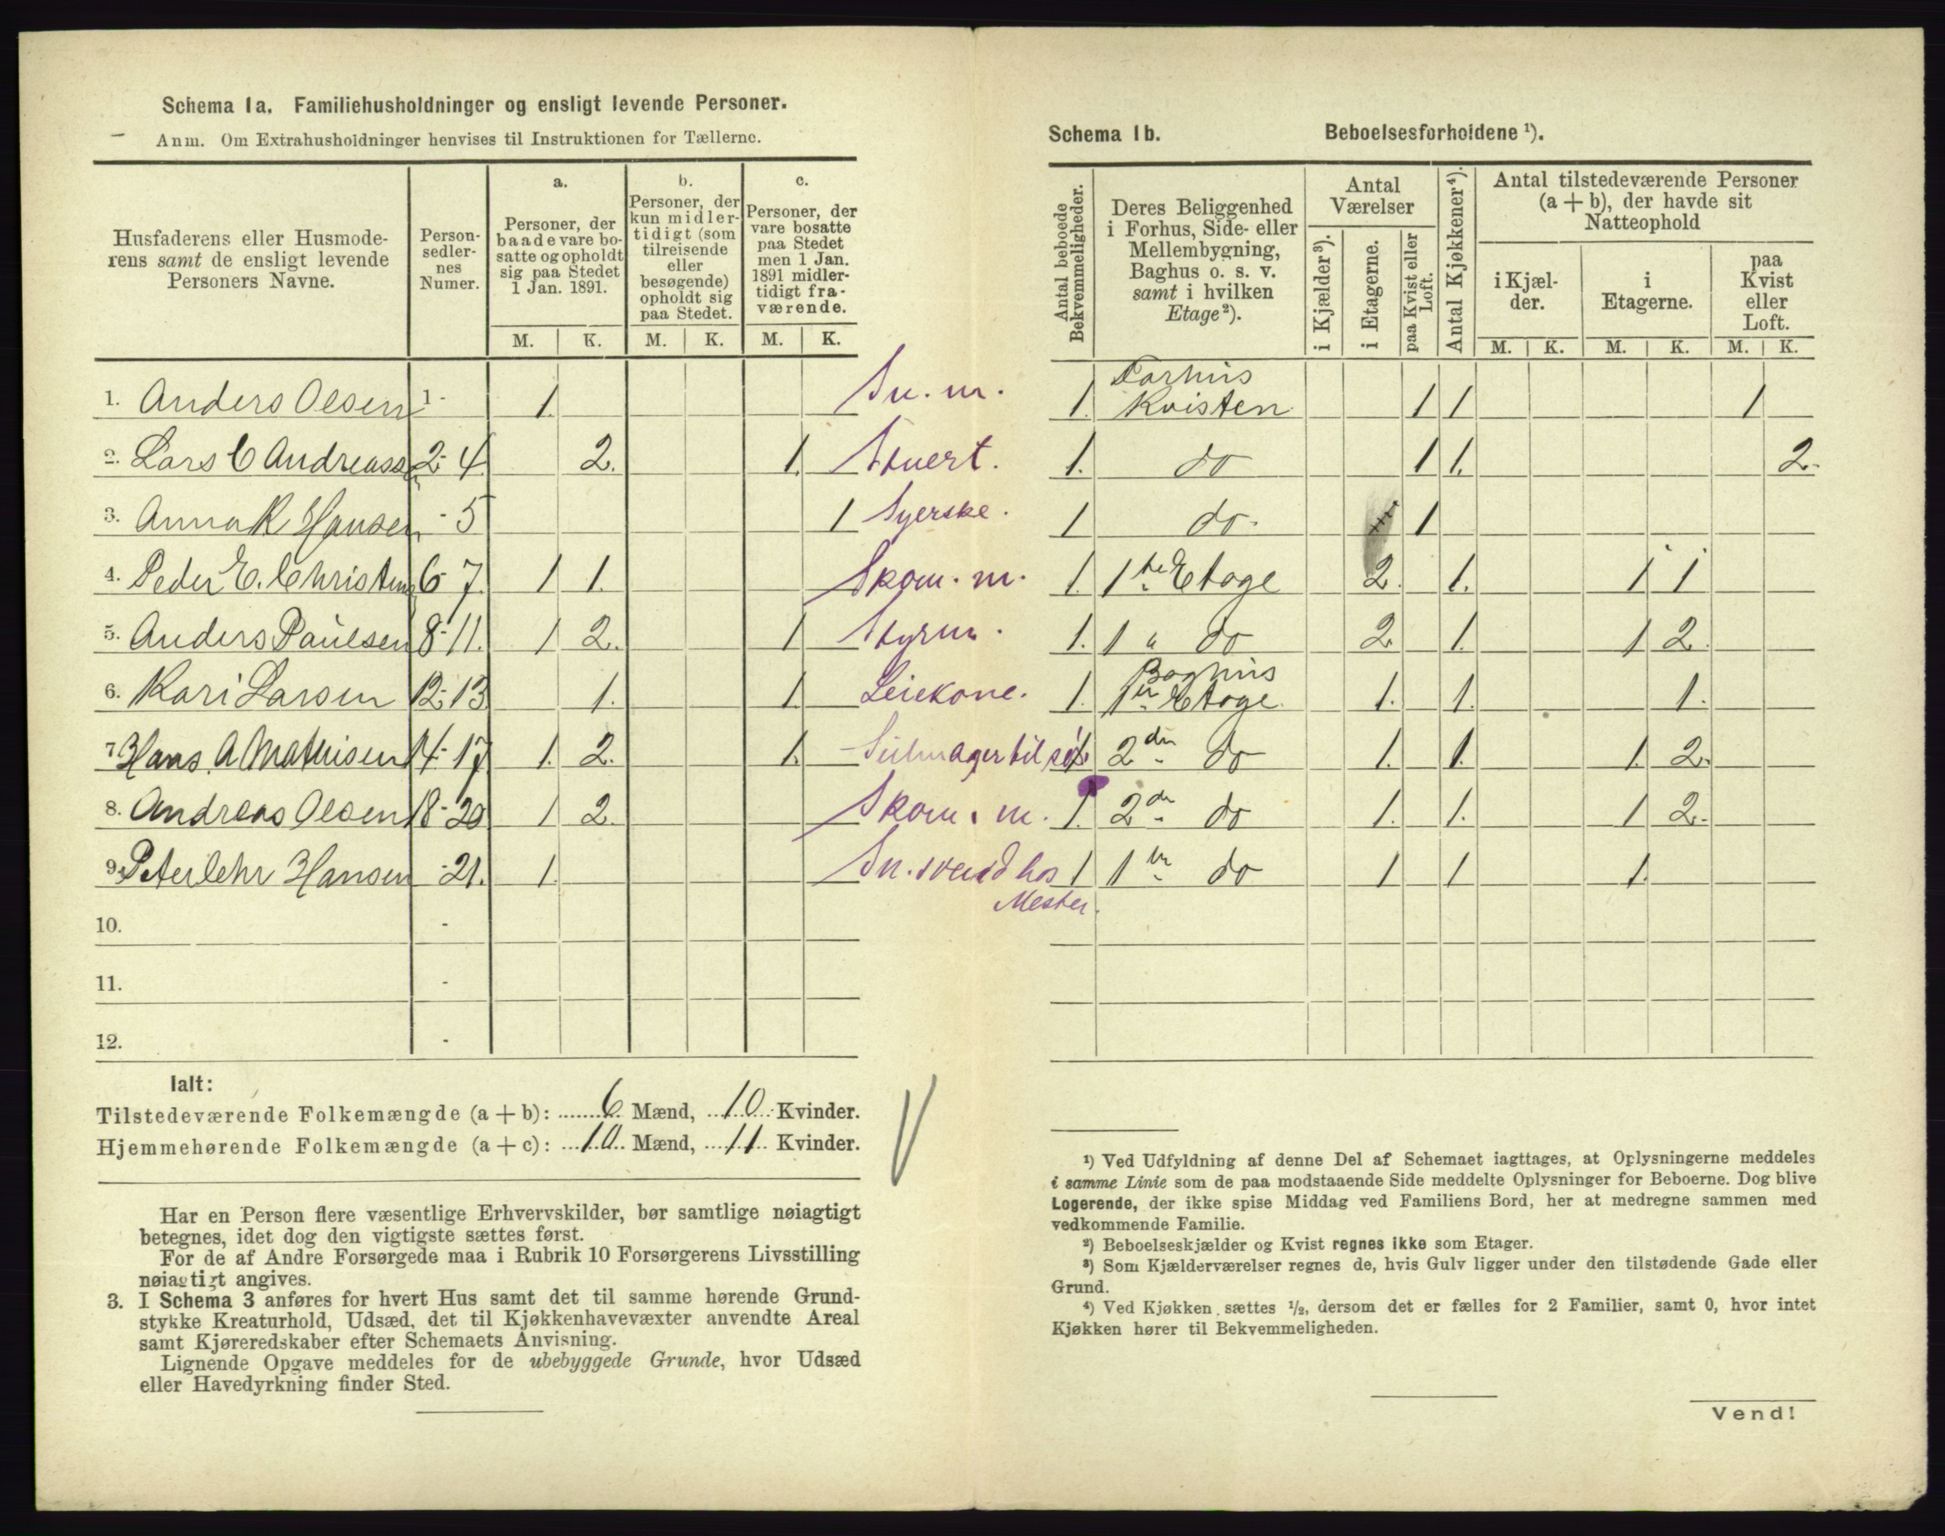 Schema 1a. Familiehusholdninger og ensligt levende Personer.
Anm. Om Extrahusholdninger henvises til Instruktionen for Tællerne.
Husfaderens eller Husmode-
rens samt de ensligt levende
Personers Navne.
Person-
sedler-
nes
Numer.
a.
Personer, der
baade vare bo-
satte og opholdt
sig paa Stedet
1 Jan. 1891.
b.
Personer, der
kun midler-
tidigt (som
tilreisende
eller
besøgende)
opholdt sig
paa Stedet.
c.
Personer, der
vare bosatte
paa Stedet
men 1 Jan.
1891 midler-
tidigt fra-
værende.
M. K. M. K. M. K.
1. Anders Olsen 1 - 1 Sn. m.
2. Lars C Andreass 2 - 4 2. 1. Stuert.
3. Anna K Hansen - 5 1 Syerske.
4. Peder E. Christens 6 - 7. 1 1. Skom. m.
5. Anders Paulsen 8 - 11. 1 2. 1 Styrm.
6. Kari Larsen 12 - 13 1. 1. Leiekone.
7 Hans A Mathisen 14 - 17 1. 2. 1. Seilmager til sø
8. Andreas Olsen 18 - 20 1 2. Skom. m.
9. Peter Lehr Hansen - 21. 1. Sn. svend hos
Mester.
10. -
11. -
12. -
Ialt:
Tilstedeværende Folkemængde (a + b): 6 Mænd, 10 Kvinder.
Hjemmehørende Folkemængde (a + c): 10 Mænd, 11 Kvinder.
Har en Person flere væsentlige Erhvervskilder, bør samtlige nøiagtigt
betegnes, idet dog den vigtigste sættes først.
For de af Andre Forsørgede maa i Rubrik 10 Forsørgerens Livsstilling
nøiagtigt angives.
3. I Schema 3 anføres for hvert Hus samt det til samme hørende Grund-
stykke Kreaturhold, Udsæd, det til Kjøkkenhavevæxter anvendte Areal
samt Kjøreredskaber efter Schemaets Anvisning.
Lignende Opgave meddeles for de ubebyggede Grunde, hvor Udsæd
eller Havedyrkning finder Sted.
Schema 1b. Beboelsesforholdene ¹).
Antal beboede
Bekvemmeligheder.
Deres Beliggenhed
i Forhus, Side- eller
Mellembygning,
Baghus o. s. v.
samt i hvilken
Etage²).
Antal
Værelser
i Kjælder³).
i Etagerne.
paa Kvist eller
Loft.
Antal Kjøkkener⁴).
Antal tilstedeværende Personer
(a + b), der havde sit
Natteophold
i Kjæl-
der.
i
Etagerne.
paa
Kvist
eller
Loft.
M. K. M. K. M. K.
Forhus
1. Kvisten 1 1 1
1. do 1 1. 2.
1 do. 1
1. 1ste Etage 2. 1. 1 1
1. 1 " do 2. 1. 1 2.
Baghus
1. 1ste Etage. 1. 1. 1.
1. 2den do 1. 1. 1. 2.
1. 2den do 1. 1. 1 2.
1 1ste do 1 1 1.
¹) Ved Udfyldning af denne Del af Schemaet iagttages, at Oplysningerne meddeles
i samme Linie som de paa modstaaende Side meddelte Oplysninger for Beboerne. Dog blive
Logerende, der ikke spise Middag ved Familiens Bord, her at medregne sammen med
vedkommende Familie.
²) Beboelseskjælder og Kvist regnes ikke som Etager.
³) Som Kjælderværelser regnes de, hvis Gulv ligger under den tilstødende Gade eller
Grund.
⁴) Ved Kjøkken sættes ½, dersom det er fælles for 2 Familier, samt 0, hvor intet
Kjøkken hører til Bekvemmeligheden.
Vend!